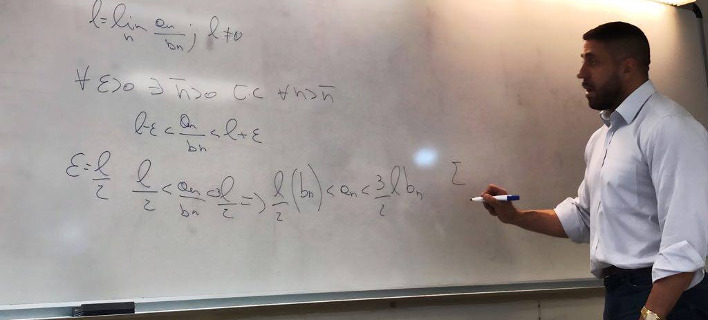 l = lim_n a_n/b_n ; l ≠ 0
∀ ε>0 ∃ n̄>0 t.c. ∀ n>n̄
l-ε < a_n/b_n < l+ε
ε = l/2 l/2 < a_n/b_n < 3l/2 => l/2 (b_n) < a_n < 3/2 l b_n Σ